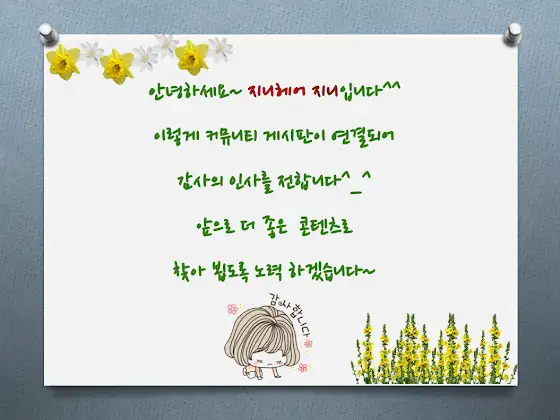 안녕하세요~ 지니헤어 지니입니다^^
이렇게 커뮤니티 게시판이 연결되어
감사의 인사를 전합니다^_^
앞으로 더 좋은 콘텐츠로
찾아 뵙도록 노력 하겠습니다~
감사합니다